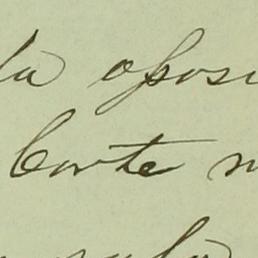 la oposi
Corte n